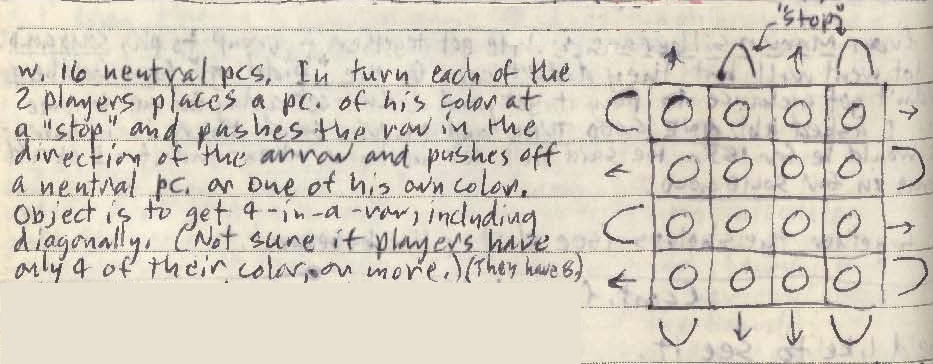 "stop"
w. 16 neutral pcs. In turn each of the
2 players places a pc. of his color at
a "stop" and pushes the row in the
direction of the arrow and pushes off
a neutral pc. or one of his own color.
Object is to get 4-in-a-row, including
diagonally. (Not sure if players have
only 4 of their color, or more.) (They have 8)